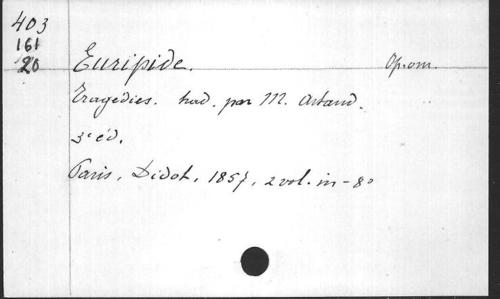 403
161
20
Euripide. Op. om.
Tragédies. trad. par M. Artaud.
3e éd.
Paris, Didot, 1857, 2 vol. in-8o